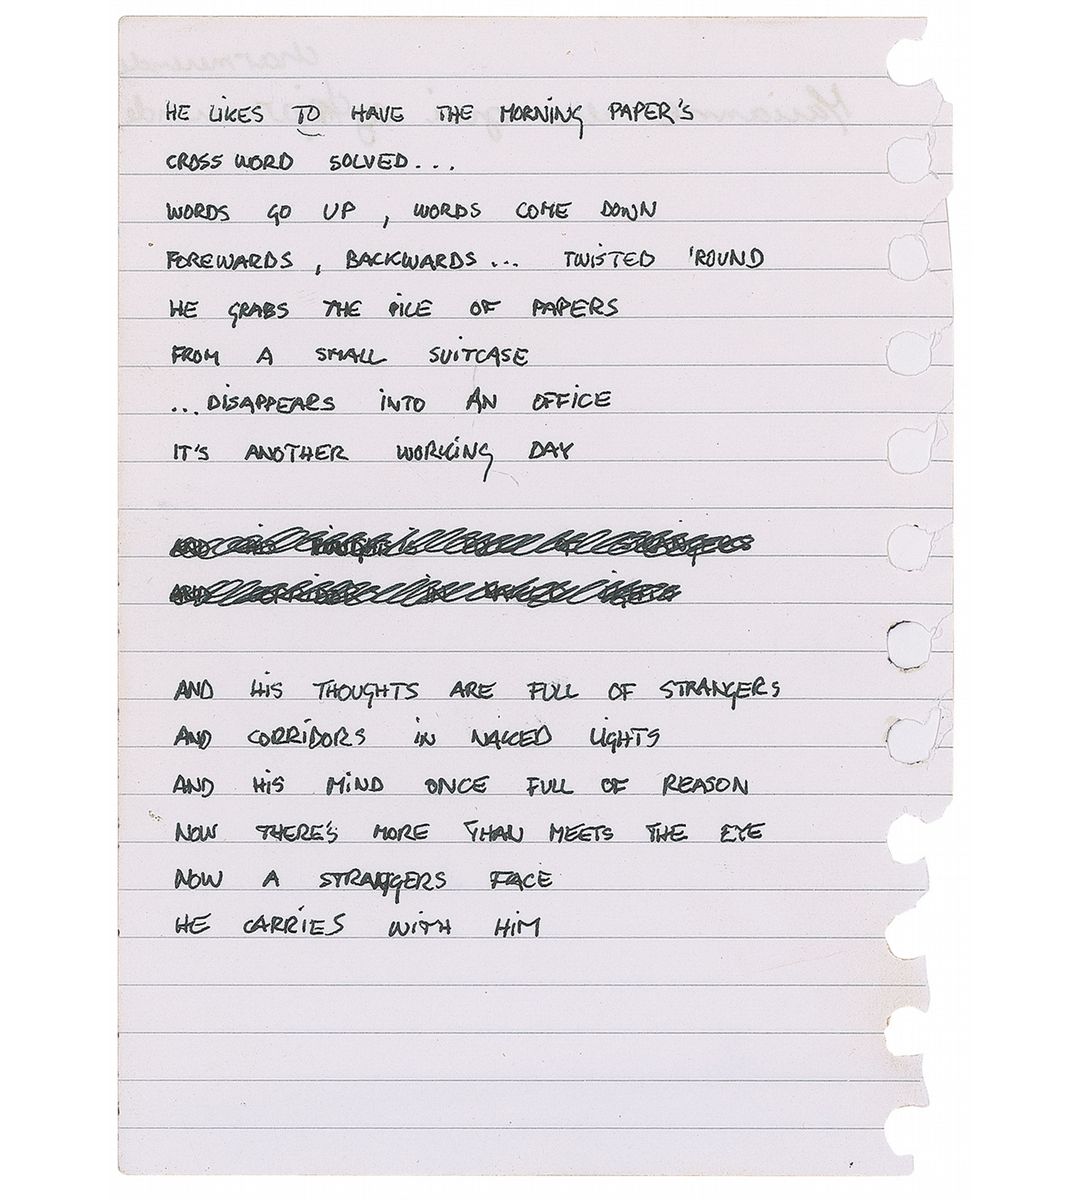 HE LIKES TO HAVE THE MORNING PAPER'S
CROSS WORD SOLVED...
WORDS GO UP, WORDS COME DOWN
FOREWARDS, BACKWARDS... TWISTED 'ROUND
HE GRABS THE PILE OF PAPERS
FROM A SMALL SUITCASE
...DISAPPEARS INTO AN OFFICE
IT'S ANOTHER WORKING DAY
AND HIS THOUGHTS ARE FULL OF STRANGERS
AND CORRIDORS IN NAKED LIGHTS
AND HIS MIND ONCE FULL OF REASON
NOW THERE'S MORE THAN MEETS THE EYE
NOW A STRANGERS FACE
HE CARRIES WITH HIM